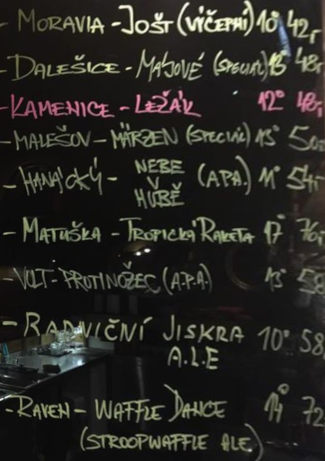 - MORAVIA - JOŠT (VÍČEPNÍ) 10° 42,-
- DALEŠICE - MÁJOVÉ (SPECIÁL) 13° 48,-
- KAMENICE - LEŽÁK 12° 48,-
- MALEŠOV - MÄRZEN (SPECIÁL) 13° 50,-
- HANÁCKÝ - NEBE V HUBĚ (A.P.A.) 11° 54,-
- MATUŠKA - TROPICKÁ RAKETA 17° 76,-
- VOLT - PROTINOŽEC (A.P.A.) 13° 58
- RADNIČNÍ JISKRA 10° 58
A.L.E
- RAVEN - WAFFLE DANCE 14° 72
(STROOPWAFFLE ALE)